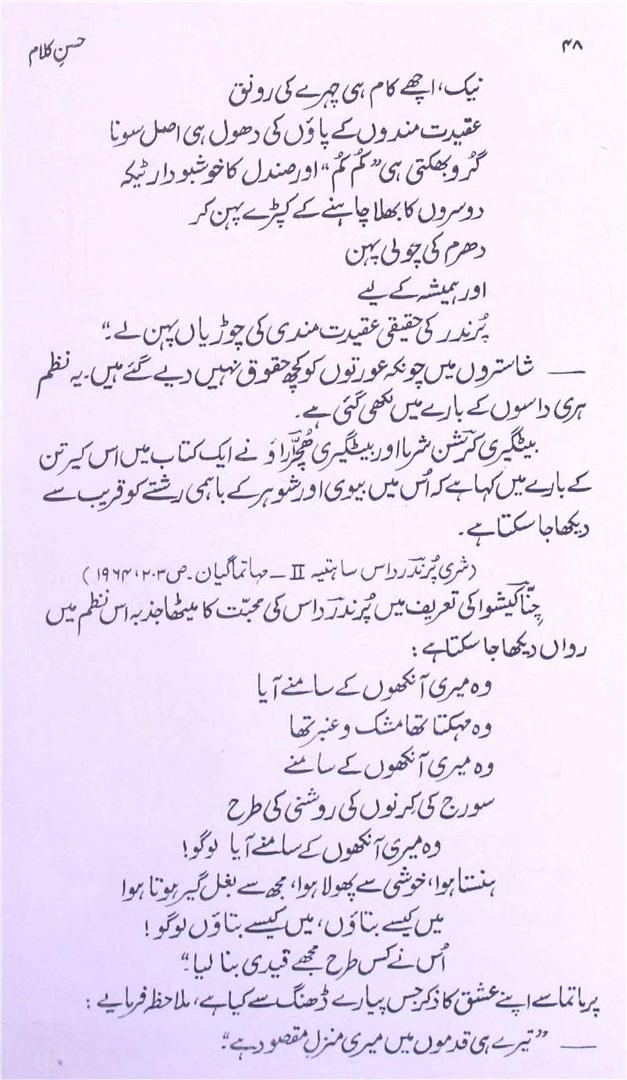 ۴۸
حسنِ کلام
نیک، اچھے کام ہی چہرے کی رونق
عقیدت مندوں کے پاؤں کی دھول ہی اصل سونا
گُرو بھکتی ہی ”کُم کُم“ اور صندل کا خوشبودار ٹیکہ
دوسروں کا بھلا چاہنے کے کپڑے پہن کر
دھرم کی چولی پہن
اور ہمیشہ کے لیے
پُرندر کی حقیقی عقیدت مندی کی چوڑیاں پہن لے۔“
—— شاستروں میں چونکہ عورتوں کو کچھ حقوق نہیں دیے گئے ہیں۔ یہ نظم
ہری داسوں کے بارے میں لکھی گئی ہے۔
بیٹگیری کرشن شرما اور بیٹگیری ہُچّراؤ نے ایک کتاب میں اس کیرتن
کے بارے میں کہا ہے کہ اُس میں بیوی اور شوہر کے باہمی رشتے کو قریب سے
دیکھا جا سکتا ہے۔
(شری پُرندر داس ساہتیہ II ـ مہاتما گیان۔ ص ۲۰۳، ۱۹۶۴)
چِنّا کیشوا کی تعریف میں پُرندر داس کی محبّت کا میٹھا جذبہ اس نظم میں
رواں دیکھا جا سکتا ہے :
وہ میری آنکھوں کے سامنے آیا
وہ مہکتا تھا مشک و عنبر تھا
وہ میری آنکھوں کے سامنے
سورج کی کرنوں کی روشنی کی طرح
وہ میری آنکھوں کے سامنے آیا لوگو!
ہنستا ہوا، خوشی سے پھولا ہوا، مجھ سے بغل گیر ہوتا ہوا
میں کیسے بتاؤں، میں کیسے بتاؤں لوگو!
اُس نے کس طرح مجھے قیدی بنا لیا۔“
پرماتما سے اپنے عشق کا ذکر جس پیارے ڈھنگ سے کیا ہے، ملاحظہ فرمایے :
—— ”تیرے ہی قدموں میں میری منزلِ مقصود ہے“۔